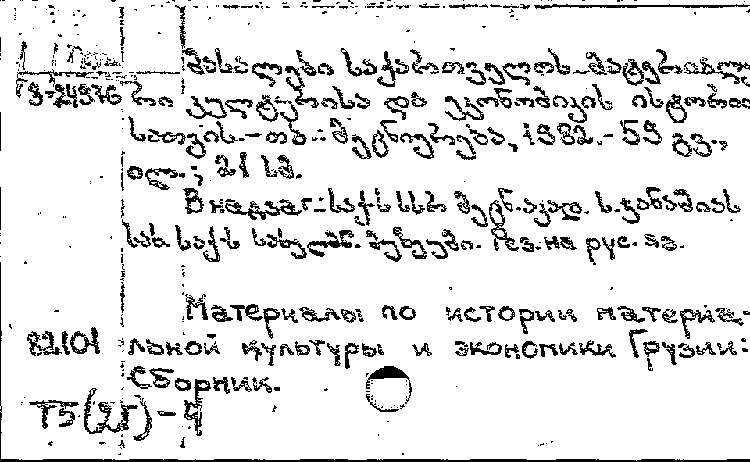 მასალები საქართველოს მატერიალუ-
3-24976 რი კულტურისა და ეკონომიკის ისტორიი-
სათვის.-თბ.: მეცნიერება, 1982.- 59 გვ.,
ილ.; 21 სმ.
В надзаг.: საქ-ს სსრ მეცნ. აკად. ს. ჯანაშიას
სახ. საქ-ს სახელმწ. მუზეუმი. Рез. на рус. яз.
Материалы по истории материа-
82101 льной культуры и экономики Грузии:
Сборник.
Т5(2Г)-4